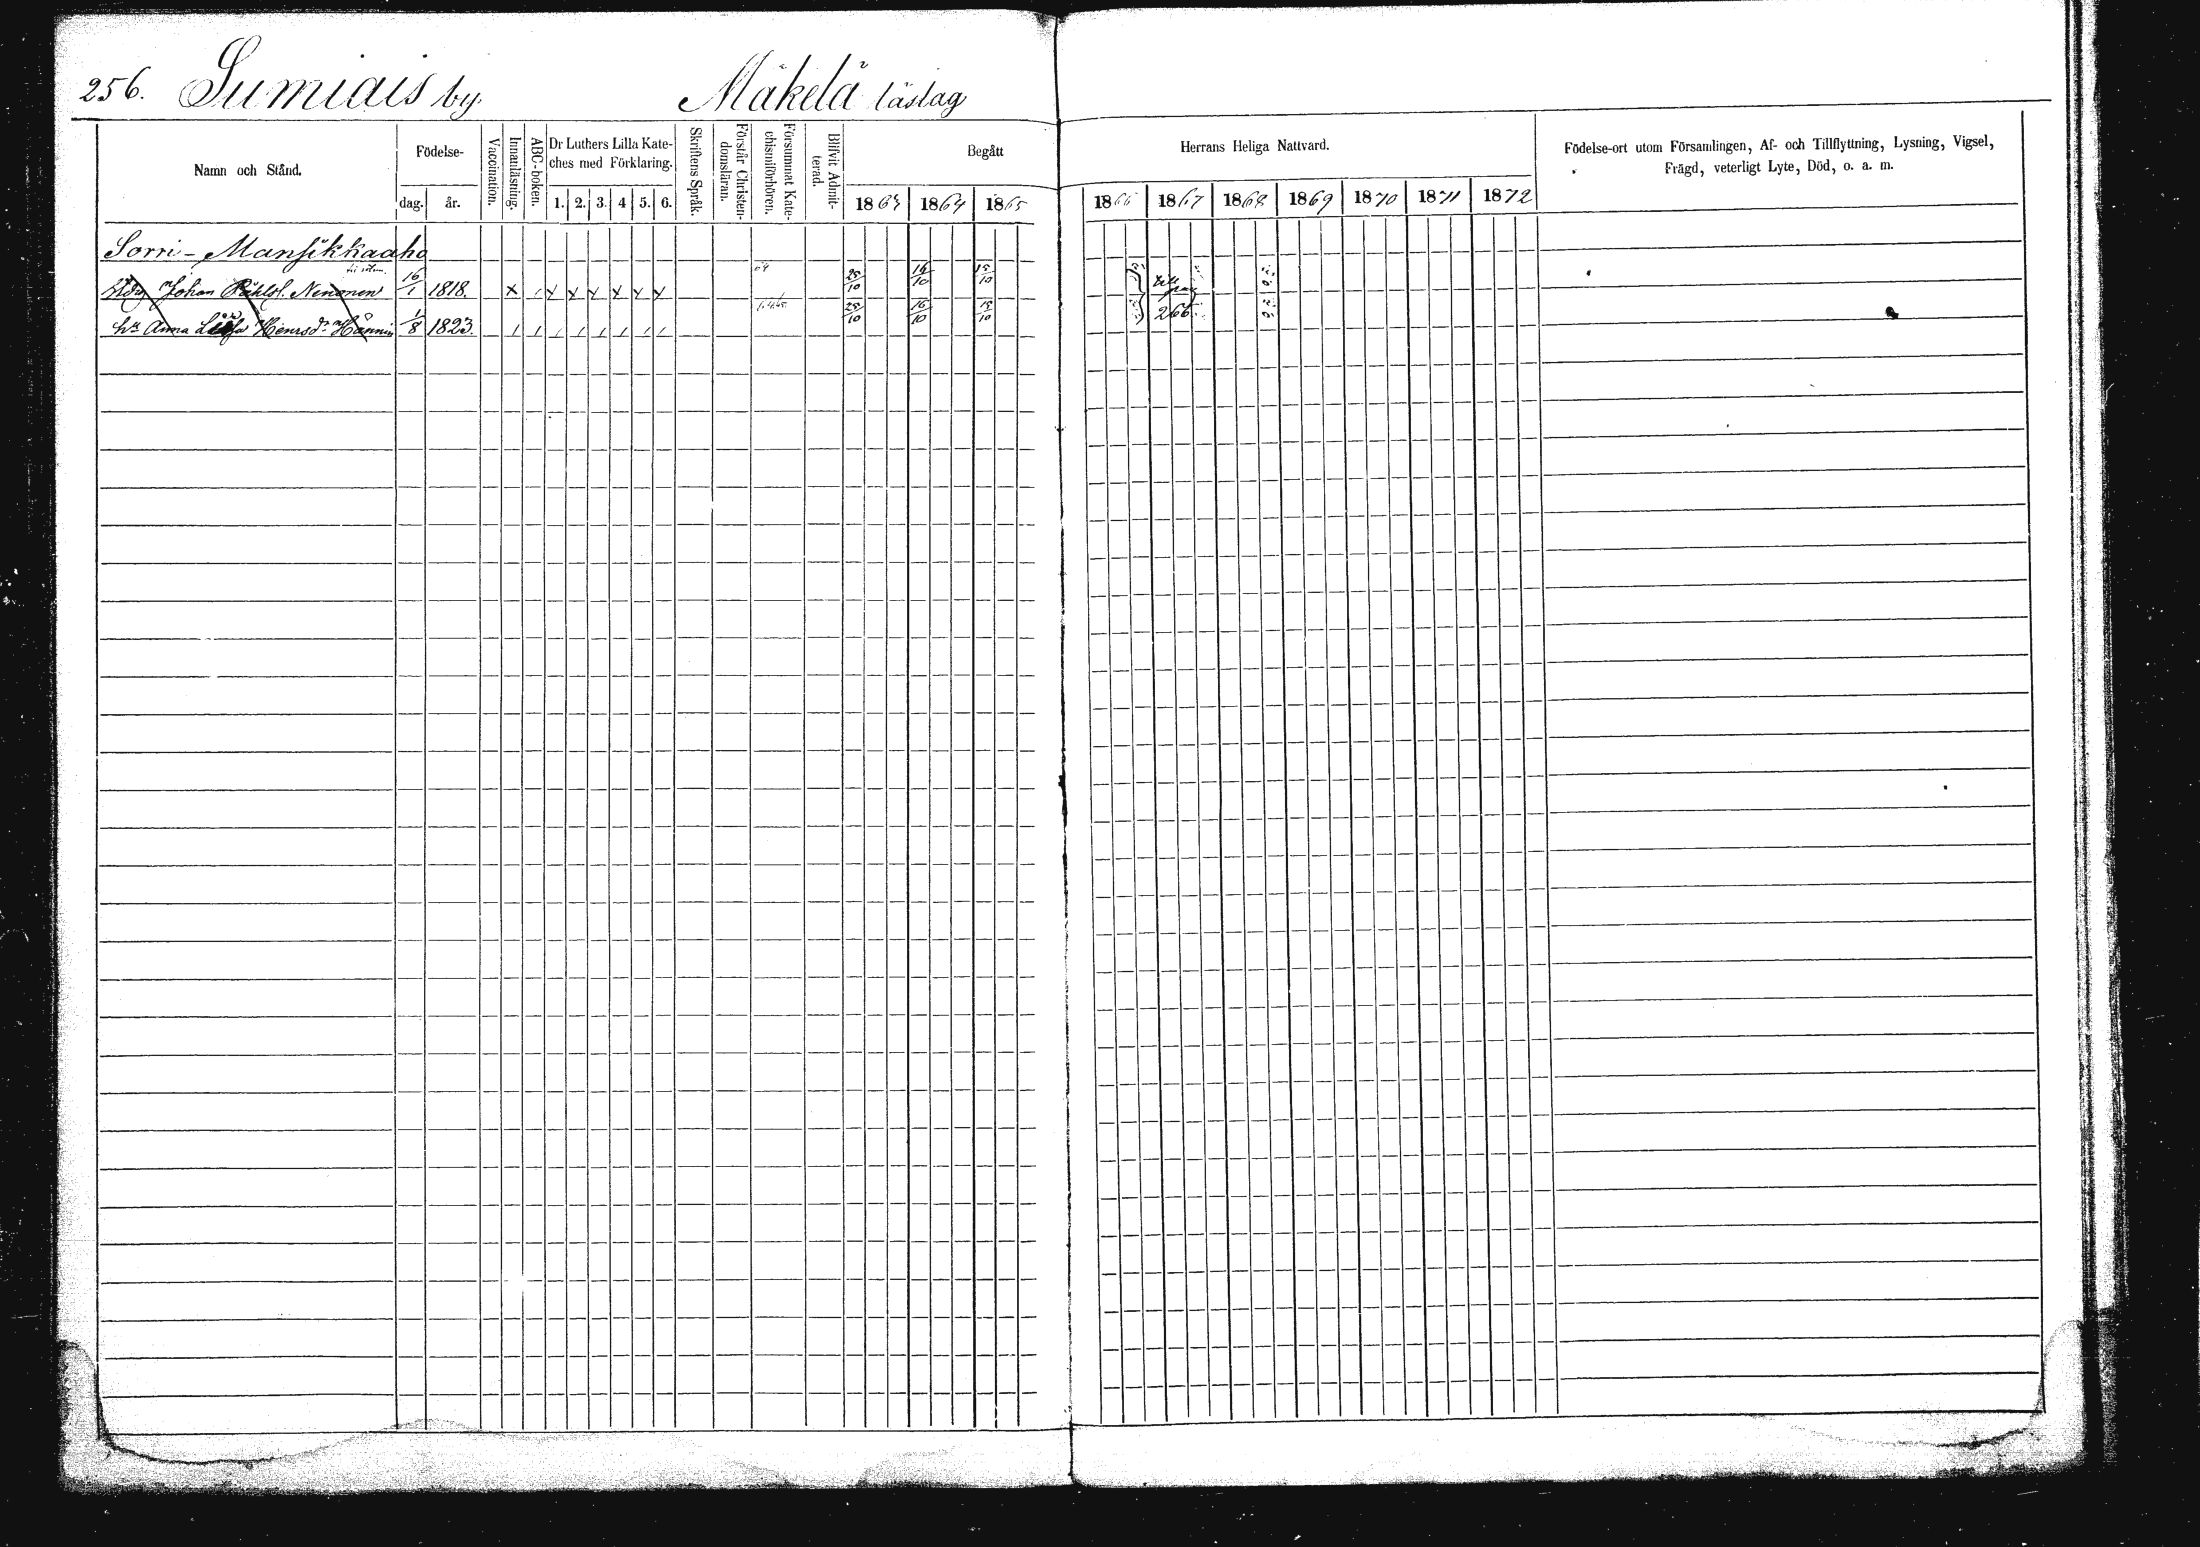 256. Sumiais by. Mäkelä läslag
Namn och Stånd.
Födelse-
dag. år.
Vaccination.
Innanläsning.
ABC-boken.
Dr Luthers Lilla Kate-
ches med Förklaring.
1. 2. 3. 4 5. 6.
Skriftens Språk.
Förstår Christen-
domsläran.
Försummat Kate-
chismiförhören.
Blifvit Admit-
terad.
Begått
1863 1864 1865
Herrans Heliga Nattvard.
1866 1867 1868 1869 1870 1871 1872
Födelse-ort utom Församlingen, Af- och Tillflyttning, Lysning, Vigsel,
Frägd, veterligt Lyte, Död, o. a. m.
Sorri-Mansikkaaho
Johan Nenonen 16/1 1818. 25/10 16/10 15/10 till pag
Anna Henrsd. Hännin 1/8 1823. 25/10 16/10 15/10 266